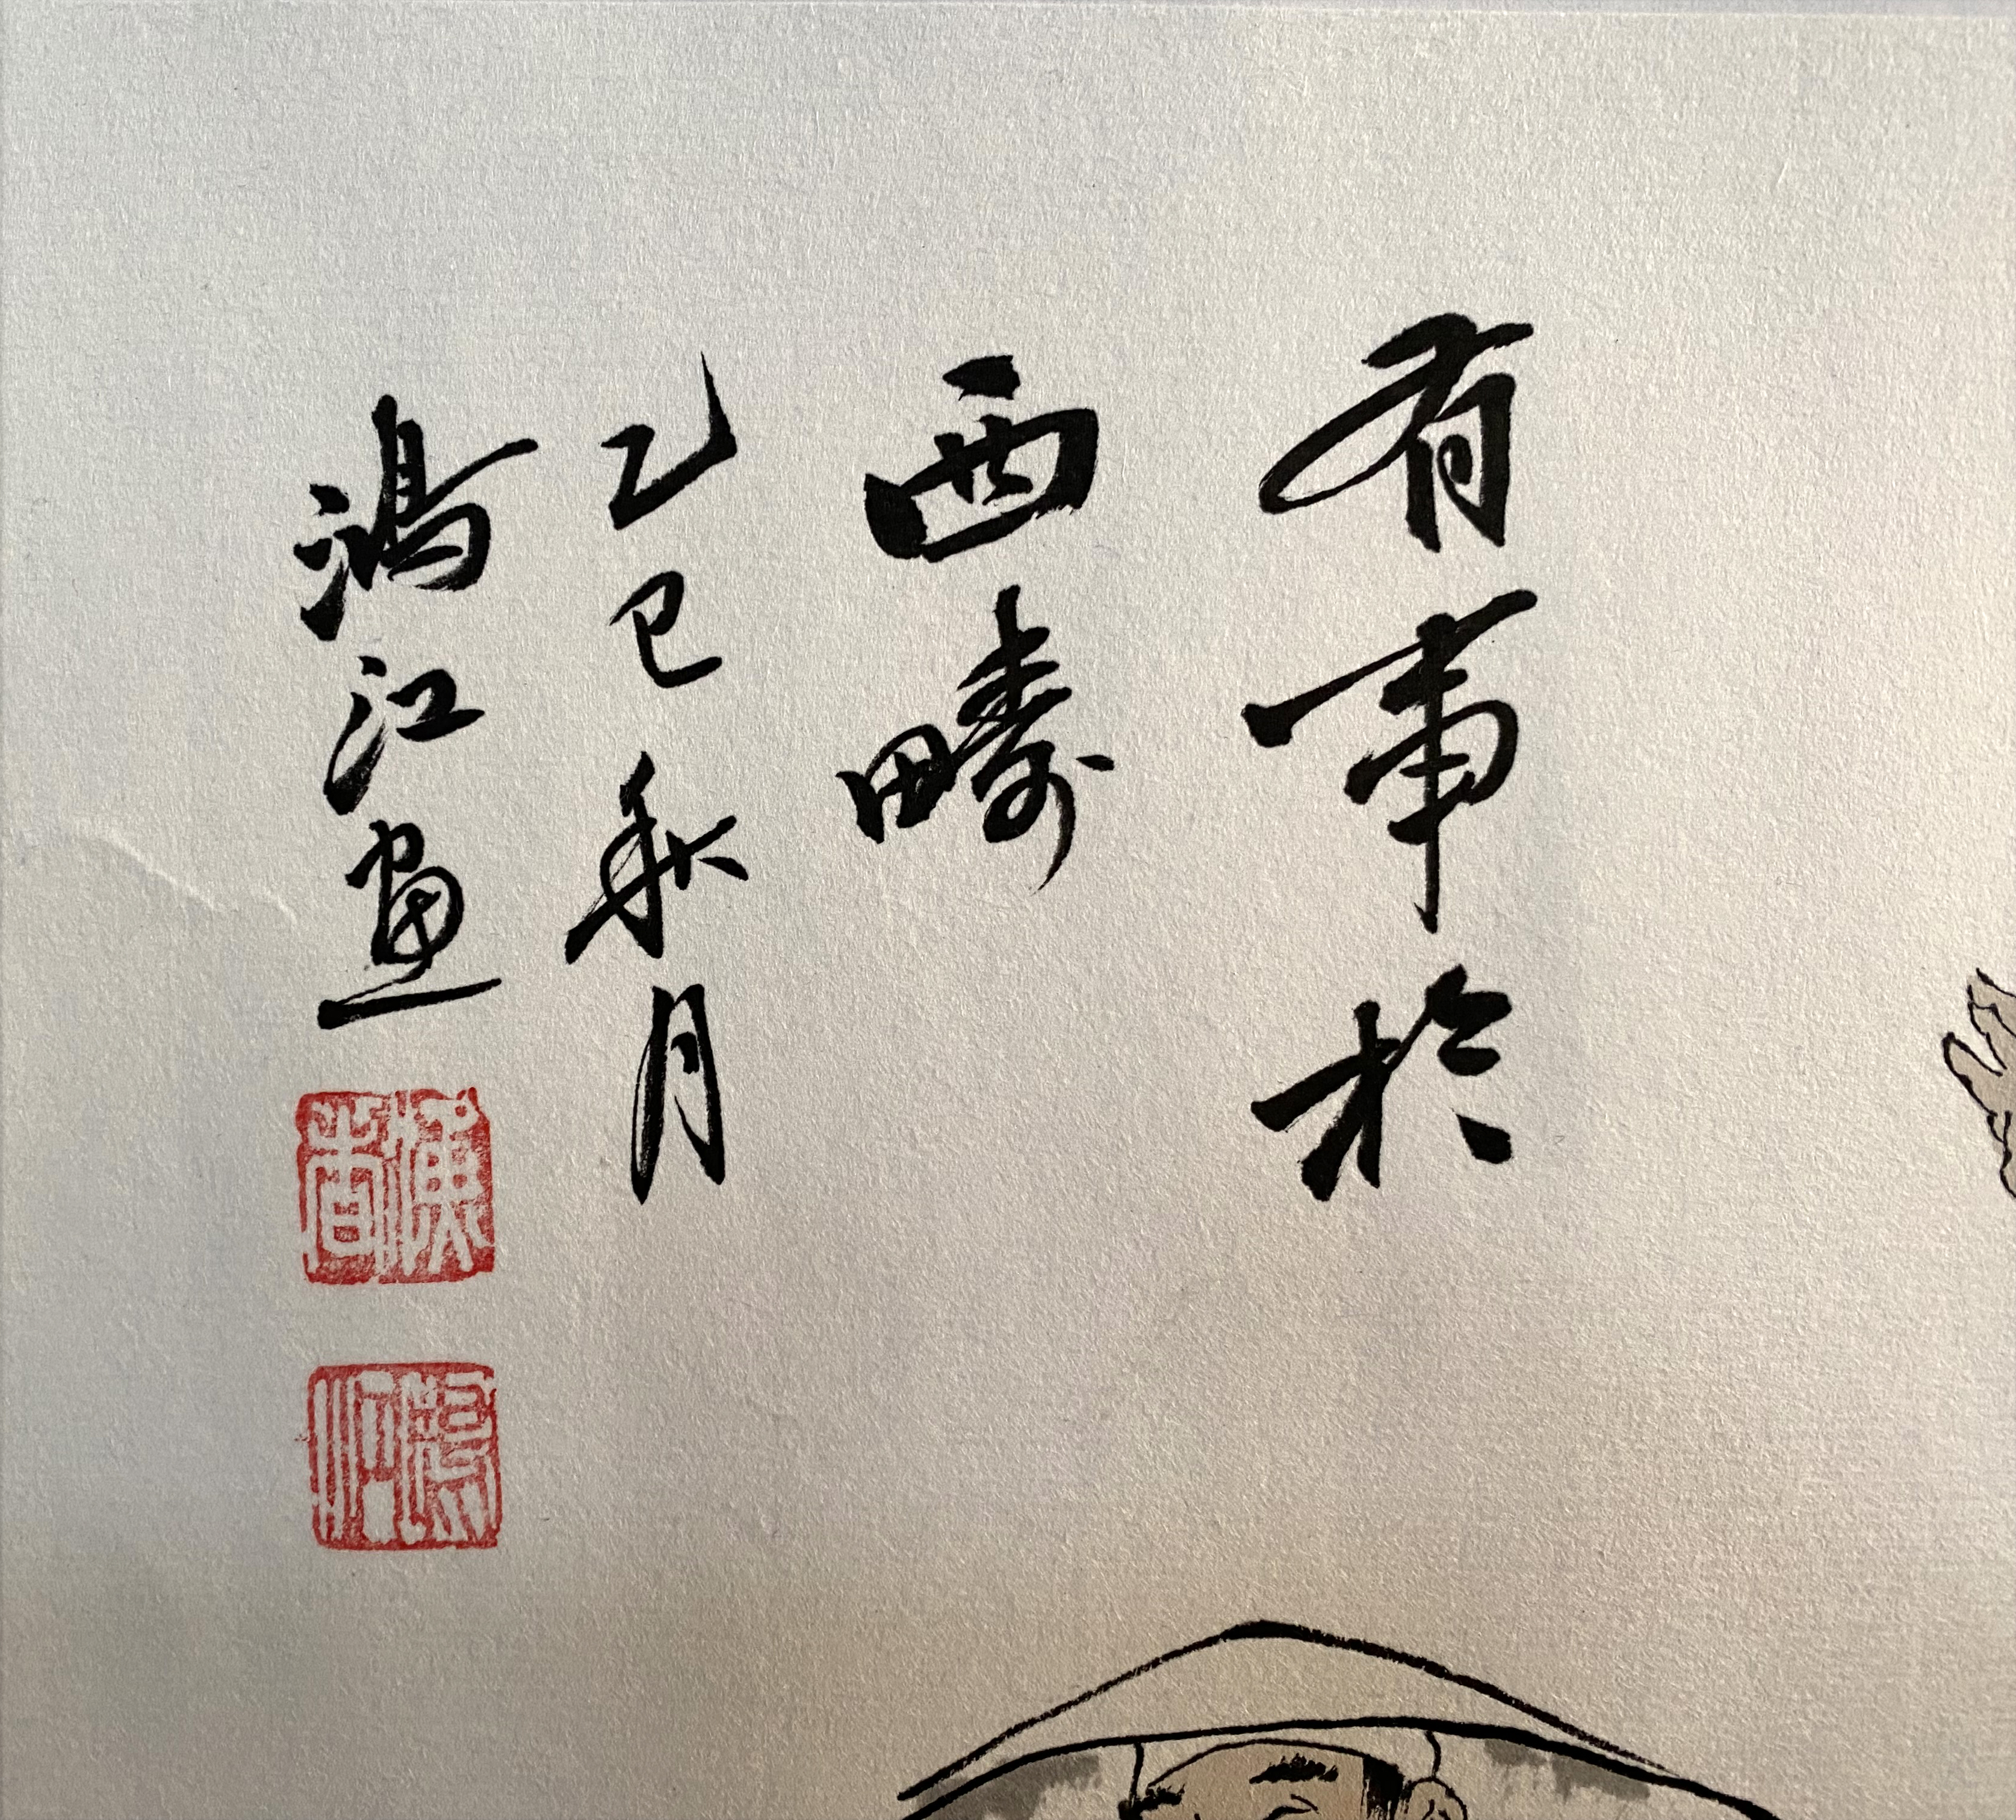 有事於
西疇
乙巳秋月
鴻江畫